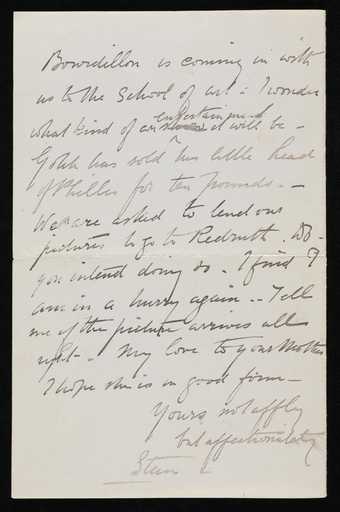 Bourdillon is coming in with
us to the School of art : I wonder
what kind of an entertainment it will be -
Gotch has sold his little head
of Phillis for ten pounds. -
We are asked to lend our
pictures to go to Redruth. Do
you intend doing so - I find I
am in a hurry again - Tell
me if the picture arrives all
right - My love to your Mother
I hope she is in good form -
Yours not affly
but affectionately
Stan